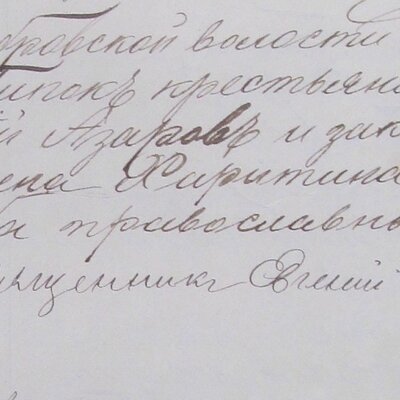 бковской волости
ипокъ крестьяни
й Азаровъ и зак
ена Харитина
ба православны
священникъ Евгений